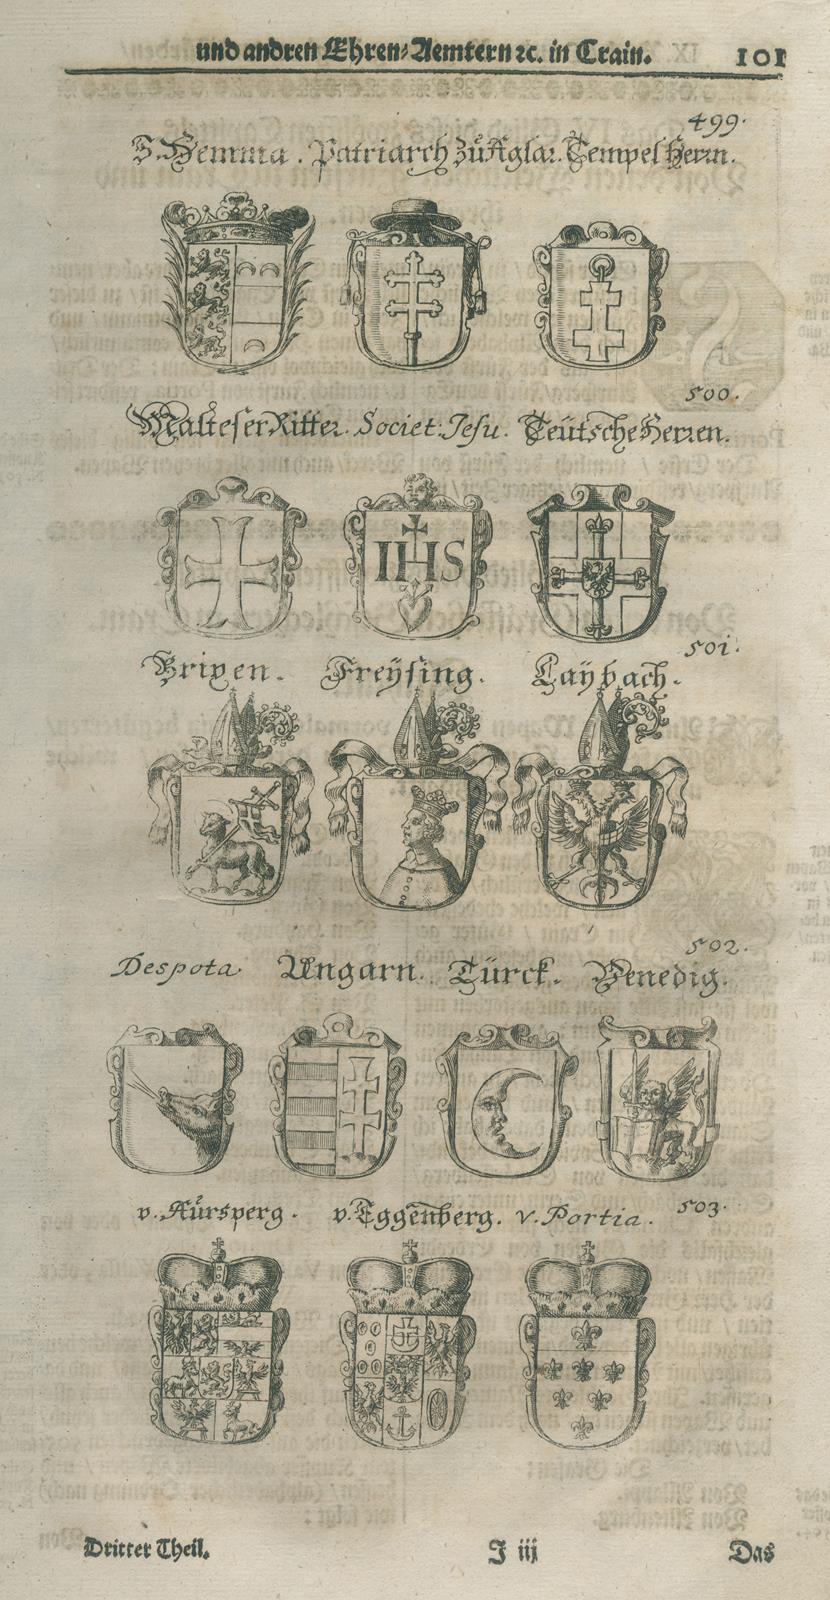 und andren Ehren-Aemtern ꝛc. in Crain. 101
499.
S. Hemma. Patriarch zu Aglar. Tempel Herrn.
500.
Malteser Ritter. Societ: Jesu. Teütsche Herren.
IHS
501.
Brixen. Freÿsing. Laybach.
502.
Despota Ungarn. Türck. Venedig.
503.
v. Aürsperg. v. Eggenberg. v. Portia.
Dritter Theil. J iij Das